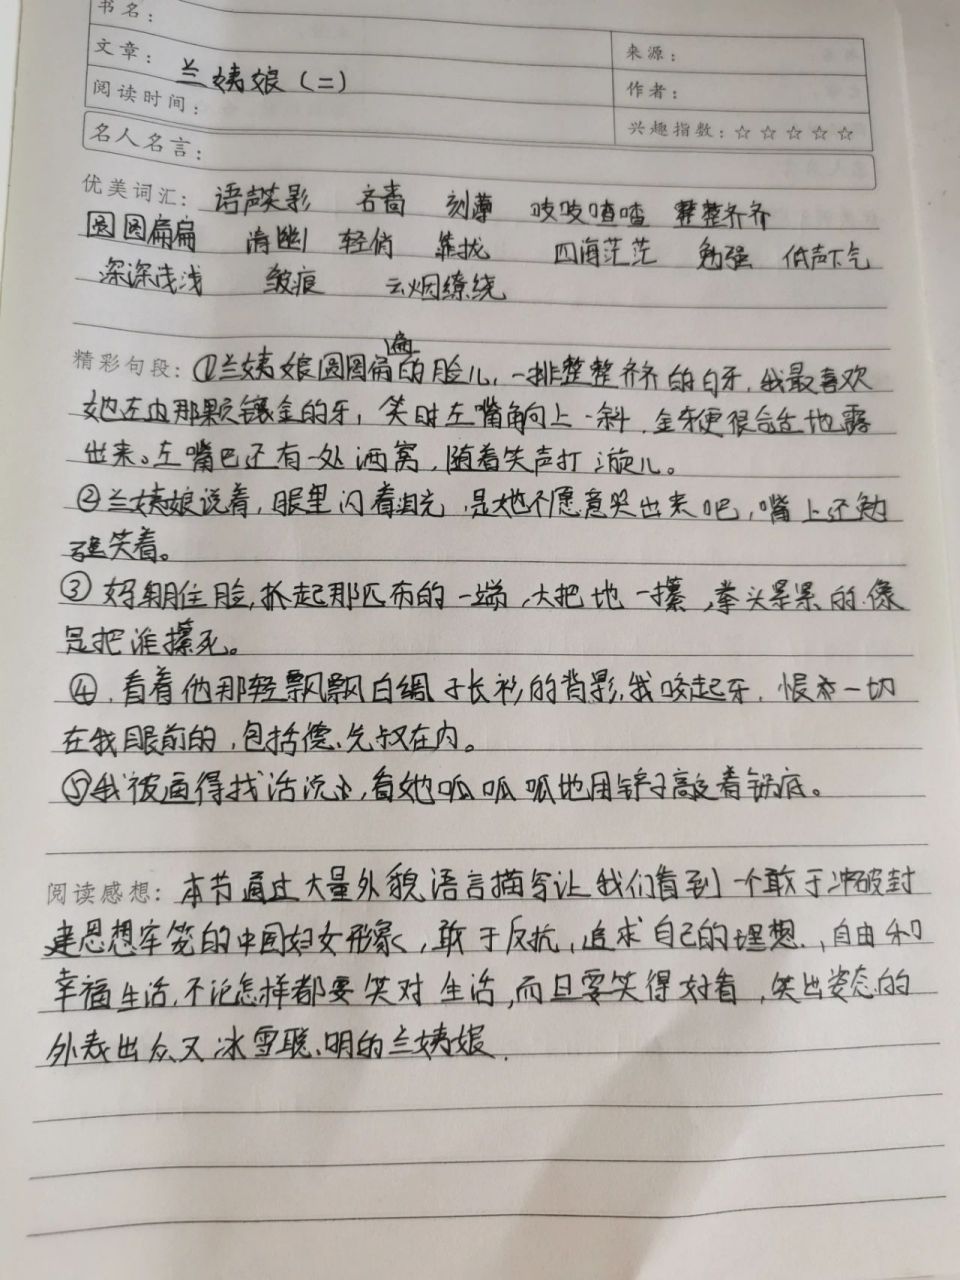 书名：
文章：兰姨娘（二）
来源：
阅读时间：
作者：
兴趣指数：☆☆☆☆☆
名人名言：
优美词汇：语声笑影 吝啬 刻薄 吱吱喳喳 整整齐齐
圆圆扁扁 清幽 轻俏 靠拢 四海茫茫 勉强 低声下气
深深浅浅 皱痕 云烟缭绕
精彩句段：①兰姨娘圆圆扁扁的脸儿，一排整整齐齐的白牙，我最喜欢
她左边那颗镶金的牙，笑时左嘴角向上一斜，金牙便很合适地露
出来。左嘴巴还有一处酒窝，随着笑声打漩儿。
②兰姨娘说着，眼里闪着泪光，是她不愿意哭出来吧，嘴上还勉
强笑着。
③妈绷住脸，抓起那匹布的一端，大把地一攥，拳头紧紧的，像
是把谁攥死。
④，看着他那轻飘飘白绸子长衫的背影，我咬起牙，恨 一切
在我眼前的，包括德先叔在内。
⑤我被 得找话说，看她呱呱呱地用铲子敲着锅底。
阅读感想：本节通过大量外貌、语言描写让我们看到一个敢于冲破封
建思想牢笼的中国妇女形象，敢于反抗，追求自己的理想，自由和
幸福生活，不论怎样都要笑对生活，而且要笑得好看，笑出姿态的
外表出众又冰雪聪明的兰姨娘．